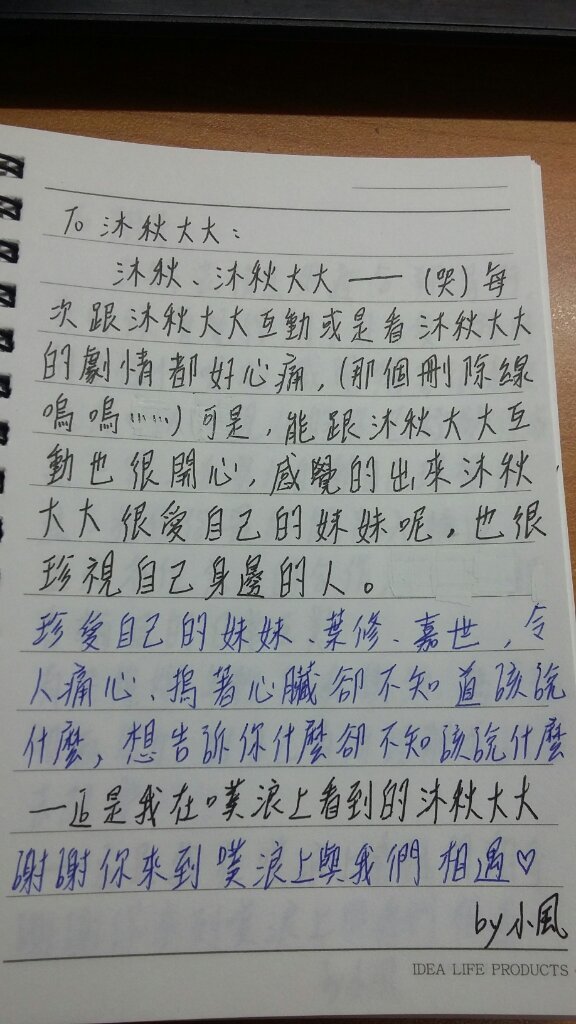 To 沐秋大大：
沐秋、沐秋大大 —— (哭) 每
次跟沐秋大大互動或是看沐秋大大
的劇情都好心痛，(那個刪除線
嗚嗚……) 可是，能跟沐秋大大互
動也很開心，感覺的出來沐秋
大大很愛自己的妹妹呢，也很
珍視自己身邊的人。
珍愛自己的妹妹、葉修、嘉世，令
人痛心、摀著心臟卻不知道該說
什麼，想告訴你什麼卻不知該說什麼
—這是我在噗浪上看到的沐秋大大
謝謝你來到噗浪上與我們相遇♡
by 小風
IDEA LIFE PRODUCTS